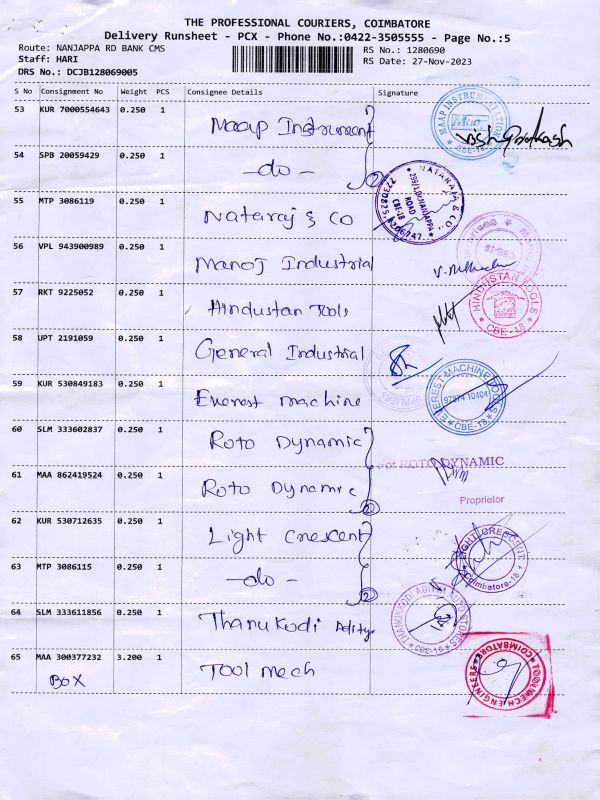 THE PROFESSIONAL COURIERS, COIMBATORE
Delivery Runsheet - PCX - Phone No.:0422-3505555 - Page No.:5
Route: NANJAPPA RD BANK CMS RS No.: 1280690
Staff: HARI RS Date: 27-Nov-2023
DRS No.: DCJB128069005
S No Consignment No Weight PCS Consignee Details Signature
53 KUR 7000554643 0.250 1 Maap Instrument
MAAP INSTRUMENTATION CBE-18
54 SPB 20059429 0.250 1 -do- 2
55 MTP 3086119 0.250 1 Nataraj & Co
NATARAJ & CO. NANJAPPA ROAD CBE-18
56 VPL 943900989 0.250 1 Manoj Industrial
57 RKT 9225052 0.250 1 Hindustan Tools
HINDUSTAN TOOLS CBE-18
58 UPT 2191059 0.250 1 General Industrial
59 KUR 530849183 0.250 1 Everest machine
EVEREST MACHINE TOOLS 97874 10404 CBE-18
60 SLM 333602837 0.250 1 Roto Dynamic
61 MAA 862419524 0.250 1 Roto Dynamic 2
For ROTO DYNAMIC
Proprietor
62 KUR 530712635 0.250 1 Light Crescent
LIGHT CRESCENT Coimbatore-18
63 MTP 3086115 0.250 1 -do- 2
64 SLM 333611856 0.250 1 Thanukodi Aditya
THANUKODI ADITYA STORES CBE-18
65 MAA 300377232 3.200 1 Tool mech
BOX
TOOLMECH ENGINEERS COIMBATORE